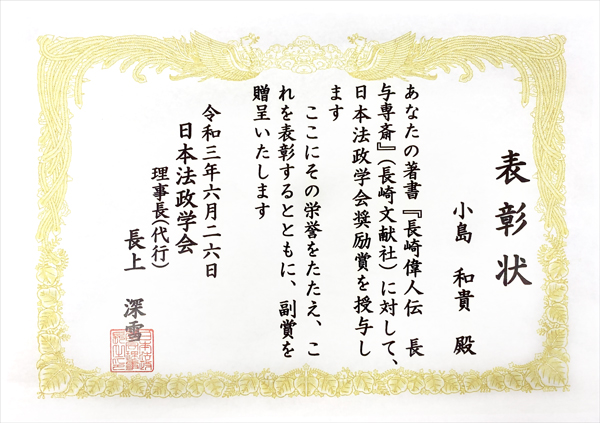 表彰状
小島　和貴　殿
あなたの著書『長崎偉人伝　長
与専斎』（長崎文献社）に対して、
日本法政学会奨励賞を授与し
ます
ここにその栄誉をたたえ、こ
れを表彰するとともに、副賞を
贈呈いたします
令和三年六月二六日
日本法政学会
理事長（代行）
長上　深雪